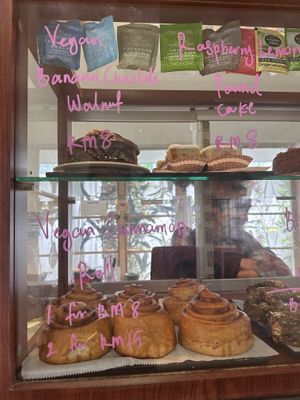 Vegan
Banana Chocolate
Walnut
RM8
Raspberry Lemon
Pound
cake
RM8
Vegan Cinnamon
Roll
1 for RM8
2 for RM15